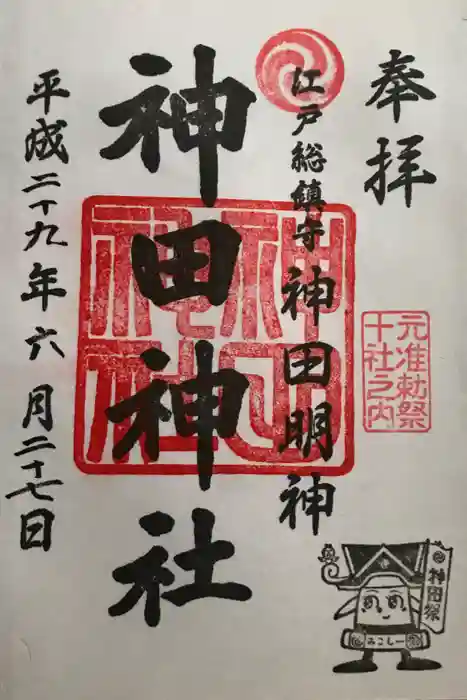 奉拝
元准勅祭
十社之内
江戸総鎮守 神田明神
神田神社
神田神社
平成二十九年六月二十七日
神田祭
みこしー